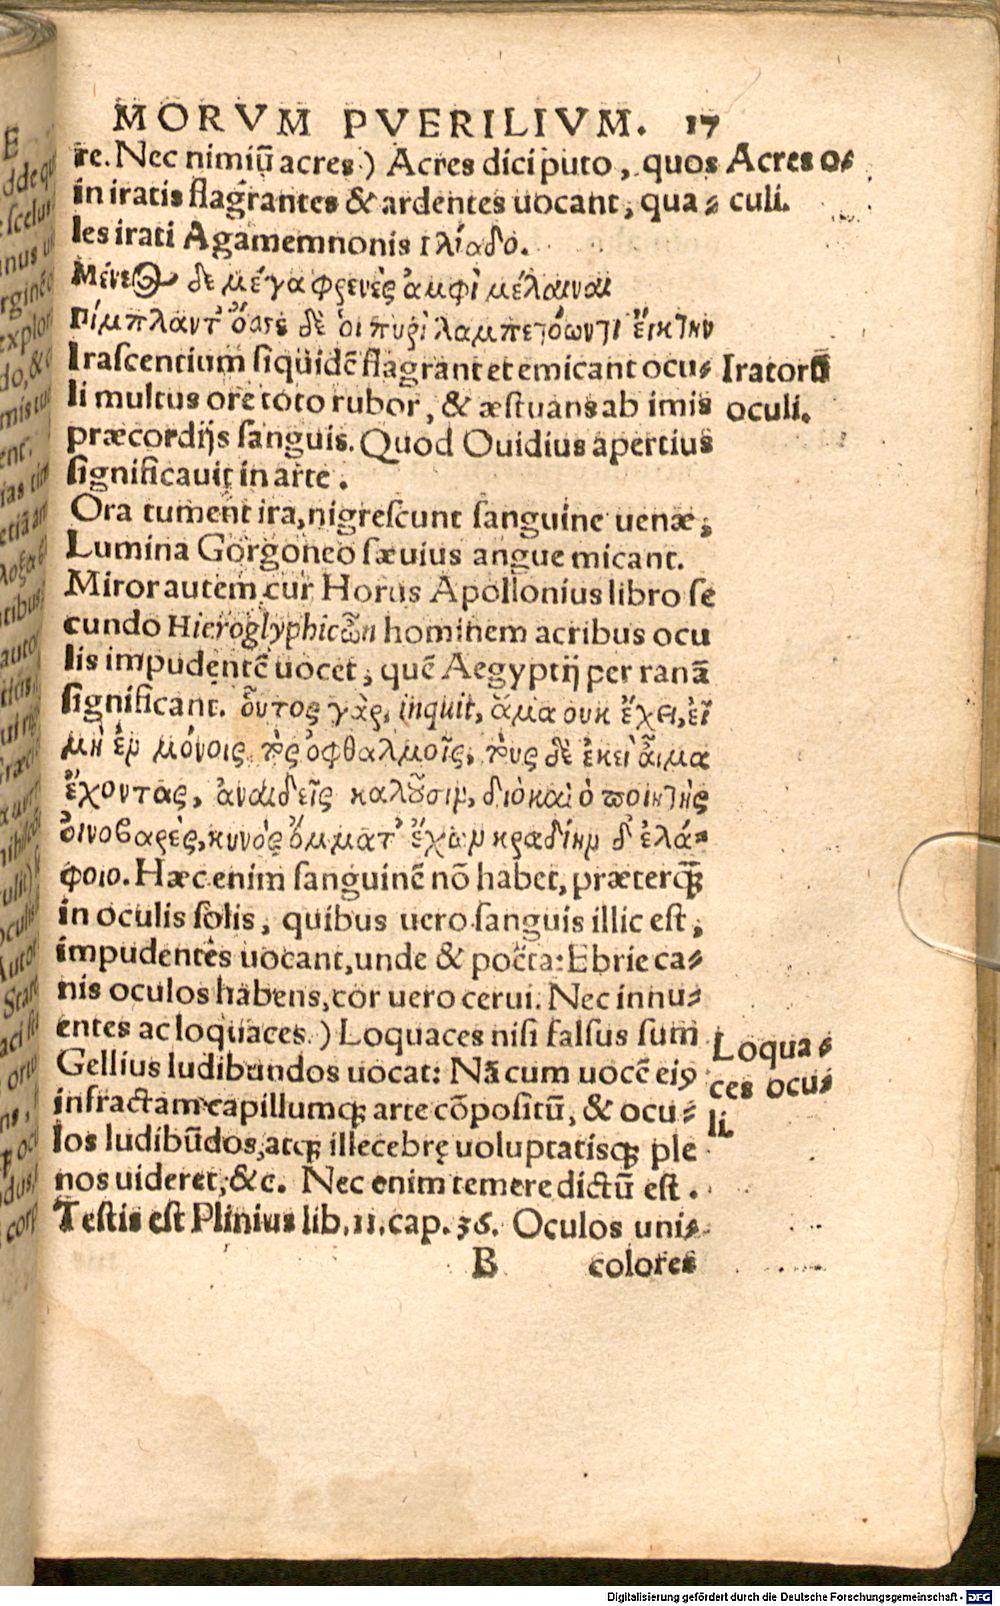 MORVM PVERILIVM. 17
re. Nec nimiũ acres) Acres dici puto, quos
in iratis flagrantes & ardentes uocant, qua-
les irati Agamemnonis ιλίαδο.
Μένεος δε μέγα φρενὲς ἀμφὶ μέλαιναι
Πίμπλαντ' ὄσσε δὲ ὁι πυρὶ λαμπετόωντι ἔικτην
Irascentium siquidẽ flagrant et emicant ocu-
li multus ore toto rubor, & æstuans ab imis
præcordijs sanguis. Quod Ouidius apertius
significauit in arte.
Ora tument ira, nigrescunt sanguine uenæ,
Lumina Gorgoneo sæuius angue micant.
Miror autem cur Horus Apollonius libro se
cundo Hieroglyphicῶn hominem acribus ocu
lis impudentẽ uocet, quẽ Aegyptij per ranã
significant. οὗτος γὰρ, inquit, ἅμα ουκ ἔχει, εἰ
μὴ ἐν μόνοις τοῖς οφθαλμοῖς, τοὺς δὲ ἐκεὶ ἇιμα
ἔχοντας, ἀναιδεῖς καλοῦσιν, διὸ καὶ ὁ ποιητὴς
ὀινοβαρὲς, κυνὸς ὄμματ' ἔχων κραδίην δ' ἐλά-
φοιο. Hæc enim sanguinẽ nõ habet, præterq̃
in oculis solis, quibus uero sanguis illic est,
impudentes uocant, unde & poëta: Ebrie ca-
nis oculos habens, cor uero cerui. Nec innu-
entes ac loquaces.) Loquaces nisi falsus sum
Gellius ludibundos uocat: Nã cum uocẽ eiꝰ
infractam capillumq; arte cõpositũ, & ocu-
los ludibũdos, atq; illecebrę uoluptatisq; ple
nos uideret, &c. Nec enim temere dictũ est.
Testis est Plinius lib. 11. cap. 36. Oculos uni-
B colores
Acres o-
culi.
Iratorũ
oculi.
Loqua-
ces ocu-
li.
Digitalisierung gefördert durch die Deutsche Forschungsgemeinschaft - DFG